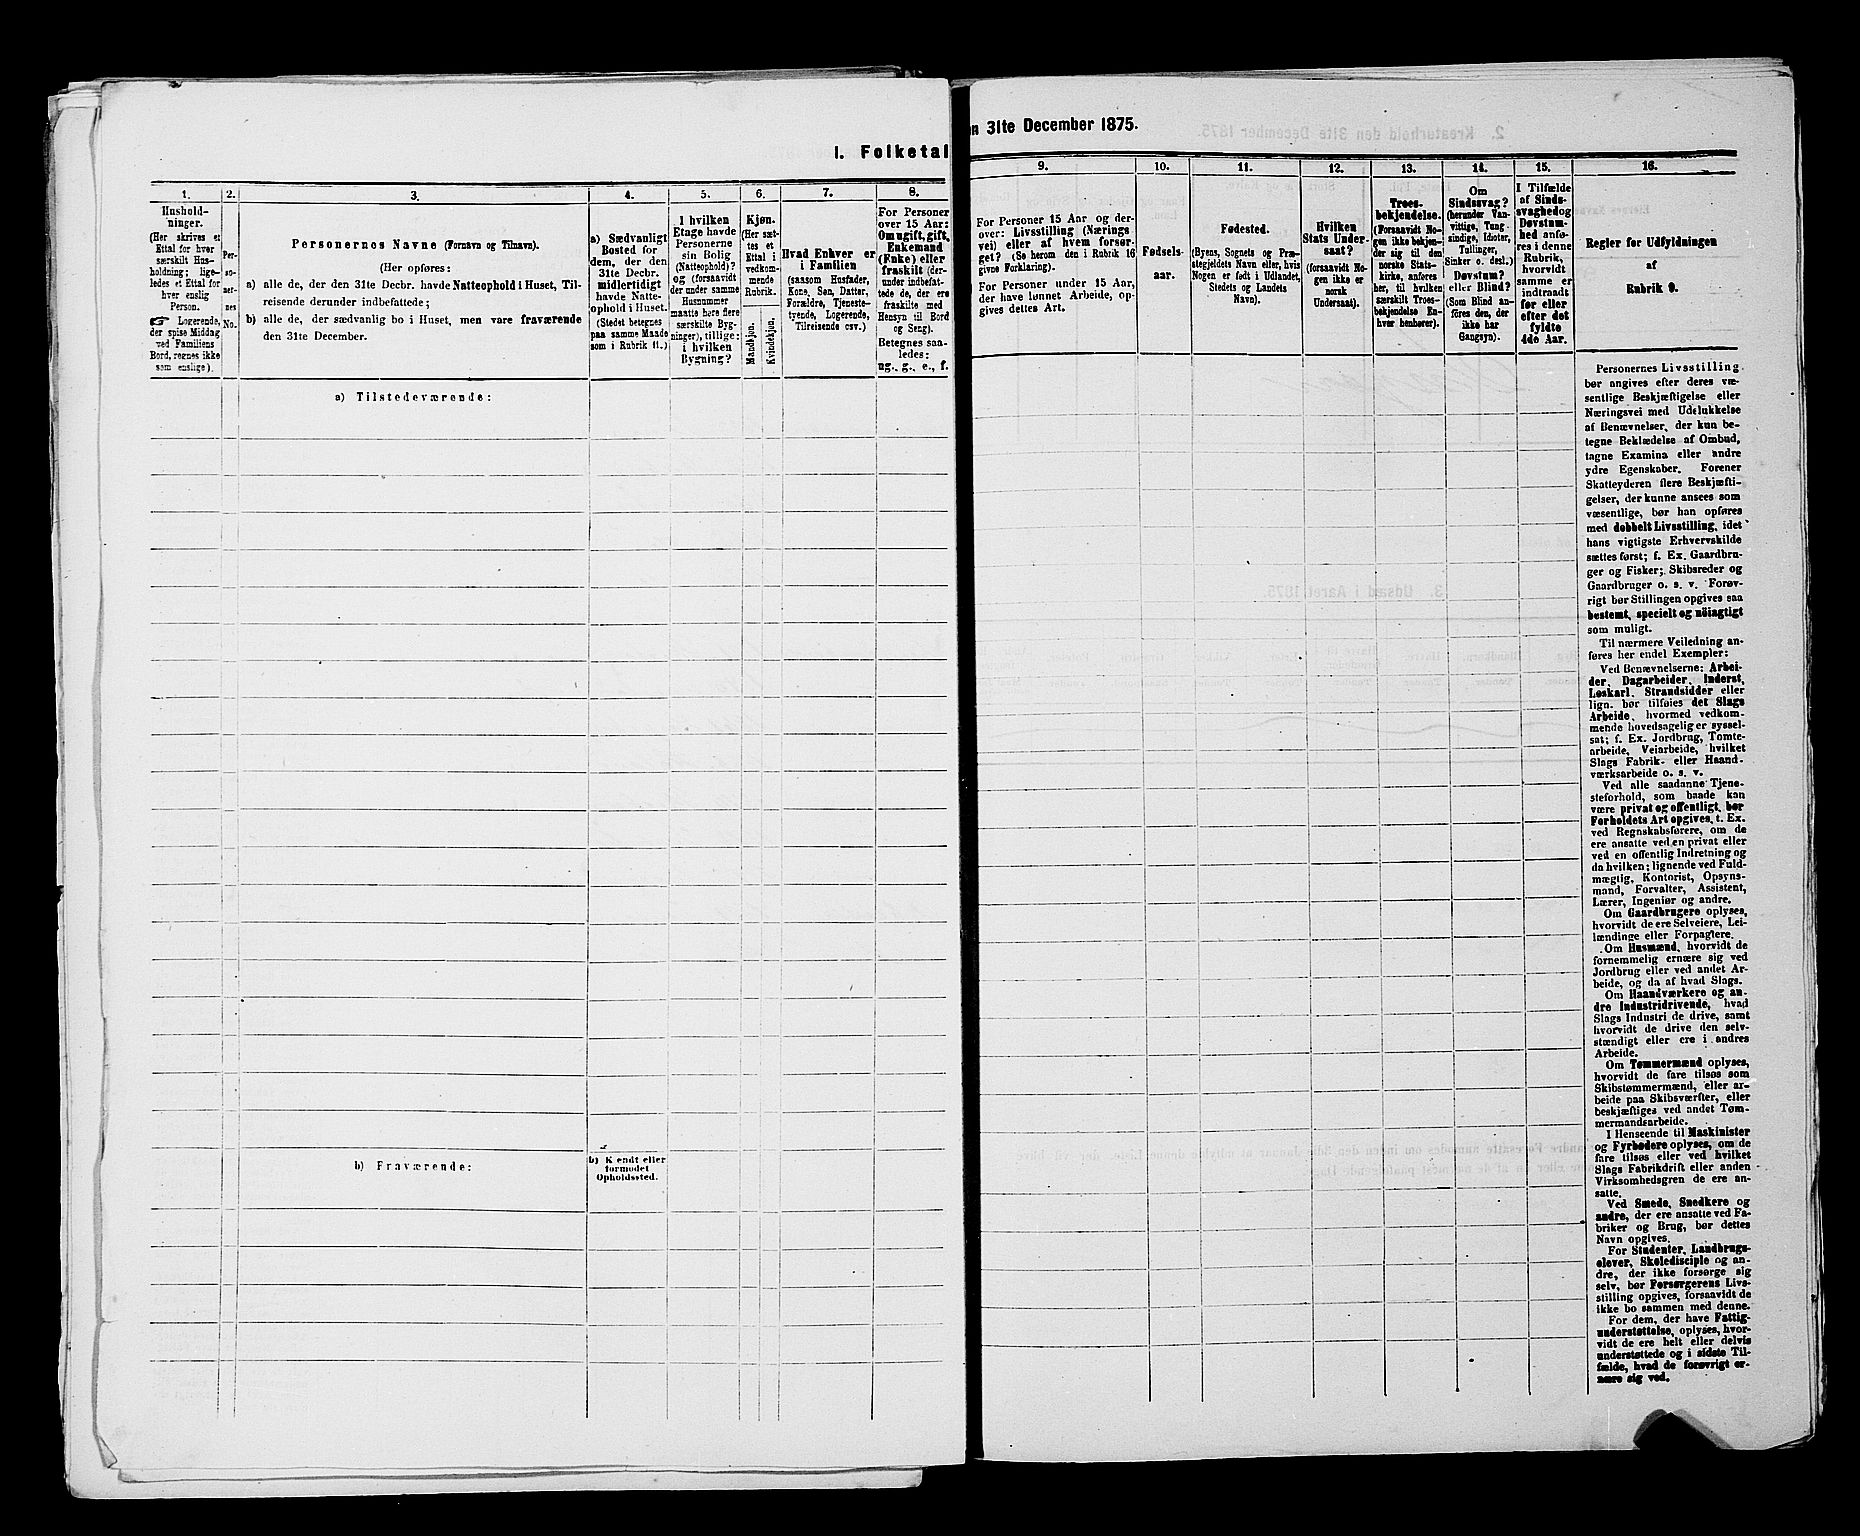 I. Folketal
1.
Hushold-
ninger.
(Her skrives et
Ettal for hver
særskilt Hus-
holdning; lige-
ledes et Ettal for
hver enslig
Person.
☞ Logerende,
der spise Middag
ved Familiens
Bord, regnes ikke
som enslige).
2.
Per-
so-
ner-
nes
No.
3.
Personernes Navne (Fornavn og Tilnavn).
(Her opføres:
a) alle de, der den 31te Decbr. havde Natteophold i Huset, Til-
reisende derunder indbefattede;
b) alle de, der sædvanlig bo i Huset, men vare fraværende
den 31te December.
4.
a) Sædvanligt
Bosted for
dem, der den
31te Decbr.
midlertidigt
havde Natte-
ophold i Huset.
(Stedet betegnes
paa samme Maade
som i Rubrik 11.)
5.
I hvilken
Etage havde
Personerne
sin Bolig
(Natteophold)?
og (forsaavidt
der under samme
Husnummer
maatte høre flere
særskilte Byg-
ninger), tillige:
i hvilken
Bygning?
6.
Kjøn.
(Her sæt-
tes et
Ettal i
vedkom-
mende
Rubrik.
Mandkjøn.
Kvindekjøn.
7.
Hvad Enhver er
i Familien
(saasom Husfader,
Kone, Søn, Datter,
Forældre, Tjeneste-
tyende, Logerende,
Tilreisende csv.)
8.
For Personer
over 15 Aar:
Om ugift, gift,
Enkemand
(Enke) eller
fraskilt (der-
under indbefat-
tede de, der ere
fraskilte med
Hensyn til Bord
og Seng).
Betegnes saa-
ledes:
ug., g., e., f.
a) Tilstedeværende:
b) Fraværende:
b) Kendt eller
formodet
Opholdssted.
en 31te December 1875.
9.
For Personer 15 Aar og der-
over: Livsstilling (Nærings-
vei) eller af hvem forsør-
get? (Se herom den i Rubrik 16
givne Forklaring).
For Personer under 15 Aar,
der have lønnet Arbeide, op-
gives dettes Art.
10.
Fødsels-
aar.
11.
Fødested.
(Byens, Sognets og Præ-
stegjeldets Navn eller, hvis
Nogen er født i Udlandet,
Stedets og Landets
Navn).
12.
Hvilken
Stats Under-
saat?
(forsaavidt No-
gen ikke er
norsk
Undersaat).
13.
Troes-
bekjendelse.
(Forsaavidt No-
gen ikke bekjen-
der sig til den
norske Stats-
kirke, anføres
her, til hvilken
særskilt Troes-
bekjendelse En-
hver henhører).
14.
Om
Sindssvag?
(herunder Van-
vittige, Tung-
sindige, Idioter,
Tullinger,
Sinker o. desl.)
Døvstum?
eller Blind?
(Som Blind an-
føres den, der
ikke har
Gangsyn).
15.
I Tilfælde
af Sinds-
svaghed og
Døvstum-
hed anfø-
res i denne
Rubrik,
hvorvidt
samme er
indtraadt
før eller
efter det
fyldte
4de Aar.
16.
Regler for Udfyldningen
af
Rubrik 9.
Personernes Livsstilling
bør angives efter deres væ-
sentlige Beskjæftigelse eller
Næringsvei med Udelukkelse
af Benævnelser, der kun be-
tegne Beklædelse af Ombud,
tagne Examina eller andre
ydre Egenskaber. Forener
Skatteyderen flere Beskjæfti-
gelser, der kunne ansees som
væsentlige, bør han opføres
med dobbelt Livsstilling, idet
hans vigtigste Erhvervskilde
sættes først; f. Ex. Gaardbru-
ger og Fisker; Skibsreder og
Gaardbruger o. s. v. Forøv-
rigt bør Stillingen opgives saa
bestemt, specielt og nöiagtigt
som muligt.
Til nærmere Veiledning an-
føres her endel Exempler:
Ved Benævnelserne: Arbei-
der, Dagarbeider, Inderst,
Løskarl, Strandsidder eller
lign. bør tilføies det Slags
Arbeide, hvormed vedkom-
mende hovedsagelig er syssel-
sat; f. Ex. Jordbrug, Tomte-
arbeide, Veiarbeide, hvilket
Slags Fabrik- eller Haand-
værksarbeide o. s. v.
Ved alle saadanne Tjene-
steforhold, som baade kan
være privat og offentligt, bør
Forholdets Art opgives, t. Ex.
ved Regnskabsførere, om de
ere ansatte ved en privat eller
ved en offentlig Indretning og
da hvilken; lignende ved Fuld-
mægtig, Kontorist, Opsyns-
mand, Forvalter, Assistent,
Lærer, Ingeniør og andre.
Om Gaardbrugere oplyses,
hvorvidt de ere Selveiere, Lei-
lændinge eller Forpagtere.
Om Husmænd, hvorvidt de
fornemmelig ernære sig ved
Jordbrug eller ved andet Ar-
beide, og da af hvad Slags.
Om Haandværkere og an-
dre Industridrivende, hvad
Slags Industri de drive, samt
hvorvidt de drive den selv-
stændigt eller ere i andres
Arbeide.
Om Tømmermænd oplyses,
hvorvidt de fare tilsøs som
Skibstømmermænd, eller ar-
beide paa Skibsværfter, eller
beskjæftiges ved andet Tøm-
mermandsarbeide.
I Henseende til Maskinister
og Fyrbødere oplyses, om de
fare tilsøs eller ved hvilket
Slags Fabrikdrift eller anden
Virksomhedsgren de ere an-
satte.
Ved Smede, Snedkere og
andre, der ere ansatte ved Fa-
briker og Brug, bør dettes
Navn opgives.
For Studenter, Landbrugs-
elever, Skoledisciple og an-
dre, der ikke forsørge sig
selv, bør Forsørgerens Livs-
stilling opgives, forsaavidt de
ikke bo sammen med denne.
For dem, der have Fattig-
understøttelse, oplyses, hvor-
vidt de ere helt eller delvis
understøttede og i sidste Til-
fælde, hvad de forøvrigt er-
nære sig ved.